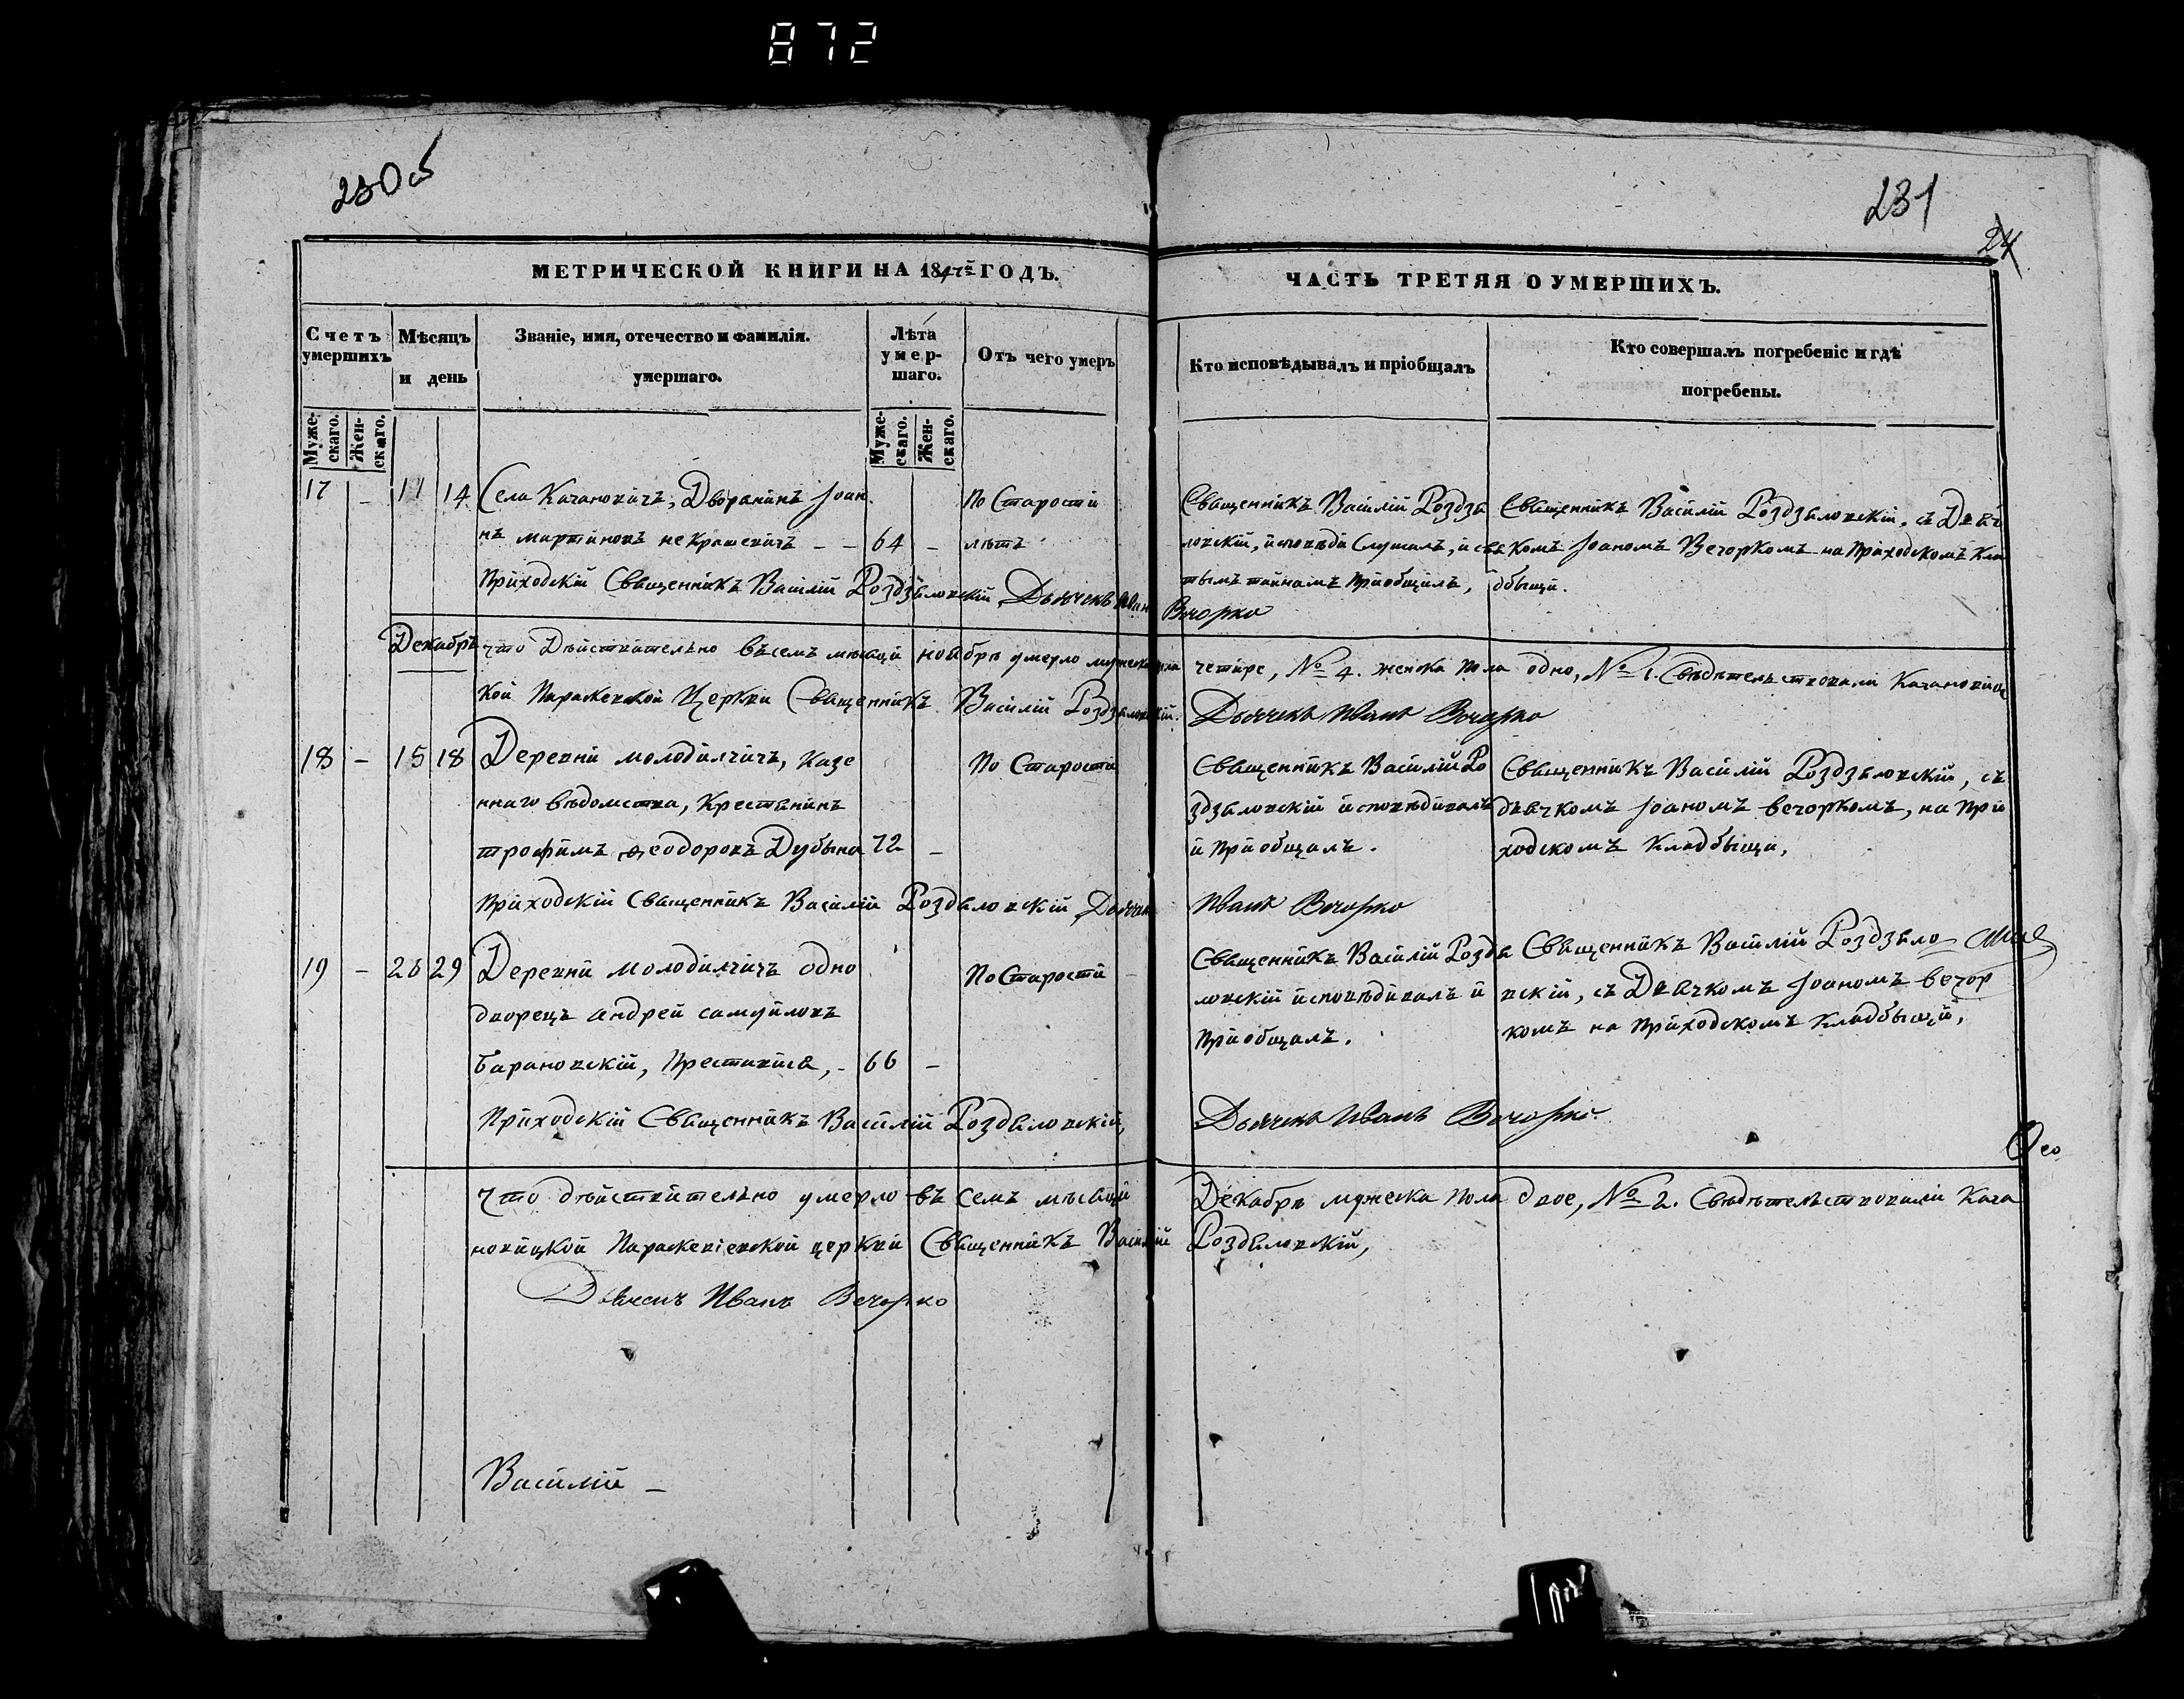 872
230об
231
24
МЕТРИЧЕСКОЙ КНИГИ НА 1847й ГОДЪ.
ЧАСТЬ ТРЕТЯЯ О УМЕРШИХЪ.
Счетъ умершихъ
Муже-скаго.
Жен-скаго.
Мѣсяцъ и день
Званіе, имя, отечество и фамилія.
умершаго.
Лѣта умер-шаго.
Муже-скаго.
Жен-скаго.
Отъ чего умеръ
Кто исповѣдывалъ и пріобщалъ
Кто совершалъ погребеніе и гдѣ
погребены.
17 – 11 14 Села Качановичъ, Дворянинъ Іоан
нъ мартиновъ некрашевичъ – – 64 –
По Старости
лѣтъ
Священникъ Василій Роздзя
ловскій, исповѣди Слушалъ, и свя
тымъ тайнамъ Приобщилъ,
Священникъ Василій Роздзяловскій, съ Дьяч
комъ Іоаномъ Вечоркомъ на Приходскомъ Кла
дбыщи.
Приходскій Священникъ Василій Роздзяловскій, Дьячекъ Иван Вечорко
Декабрь
что Дѣйствително въ семъ мѣсяци ноябрѣ умерло мужеска пола четире, № 4. женска пола одно, № 1. Свѣдѣтельствовали Качановиц
кой Параскевской Церкви Священникъ Василій Роздзяловскій. Дьячекъ Иванъ Вечорко
18 – 15 18 Деревни молодилчичъ, Казе
ннаго вѣдомства, Крестянинъ
трофимъ Ѳеодоровъ Дубына 72 –
По Старости
Священникъ Василій Ро
здзяловскій исповѣдивалъ
и Приобщалъ.
Священникъ Василій Роздзяловскій, съ
дьячкомъ Іоаномъ вечоркомъ, на При
ходскомъ Кладбыщи,
Приходскій Священникъ Василій Роздяловскій, Дьячекъ Иванъ Вечорко
19 – 26 29 Деревни Молодилчичъ одно
дворецъ андрей самуйловъ
барановскій, Преставися, – 66 –
По Старости
Священникъ Василій Роздя
ловскій исповѣдивалъ и
Приобщалъ.
Священникъ Василій Роздзяло
вскій, съ Дьячкомъ Іоаномъ вечор
комъ на Приходскомъ Кладбыщи,
Приходскій Священникъ Василій Роздяловскій, Дьячекъ Иванъ Вечорко.
Ѳео
что дѣйствително умерло въ семъ мѣсяци Декабрѣ мужеска пола двое, № 2. Свѣдѣтельствовали Кача
новицкой Параскевіевской церкви Священникъ Василій Роздяловскій,
Дьячекъ Иванъ Вечорко
Василій –